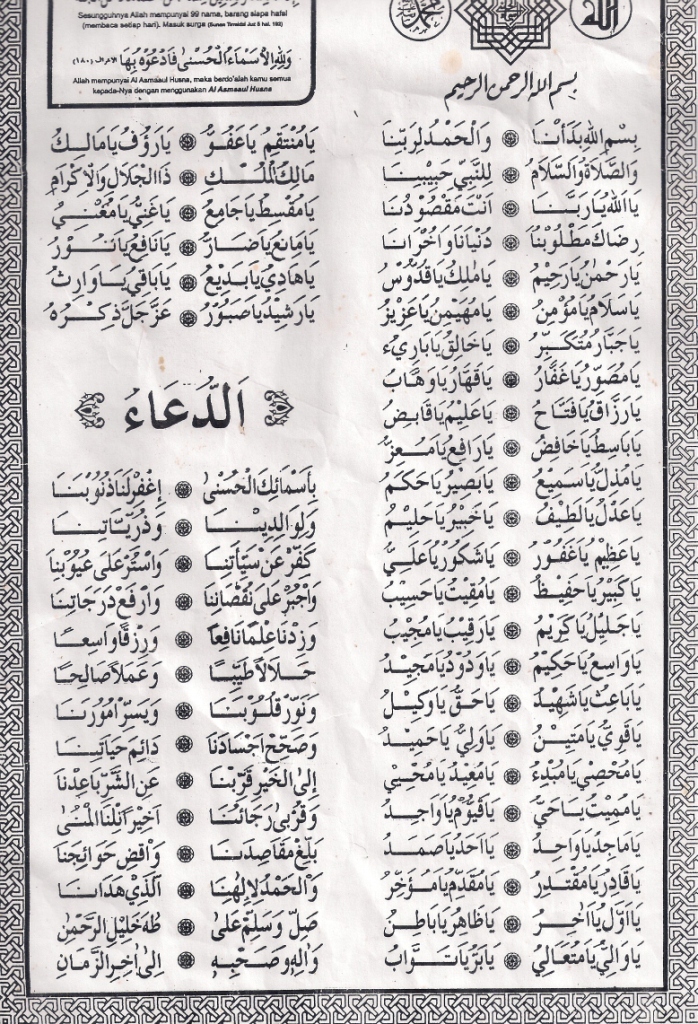 Sesungguhnya Allah mempunyai 99 nama, barang siapa hafal
(membaca setiap hari). Masuk surga (Sunan Tirmidzi Juz 5 hal. 192)
وَلِلّٰهِ الْاَسْمَاءُ الْحُسْنٰى فَادْعُوْهُ بِهَا (الاعراف ١٨٠)
Allah mempunyai Al Asmaaul Husna, maka berdo'alah kamu semua
kepada-Nya dengan menggunakan Al Asmaaul Husna
الله
محمد
بسم الله الرحمن الرحيم
بِسْمِ اللهِ بَدَأْنَا ۞ وَالْحَمْدُ لِرَبِّنَا
وَالصَّلَاةُ وَالسَّلَامُ ۞ لِلنَّبِيِّ حَبِيْبِنَا
يَا اَللهُ يَا رَبَّنَا ۞ اَنْتَ مَقْصُوْدُنَا
رِضَاكَ مَطْلُوْبُنَا ۞ دُنْيَانَا وَاُخْرَانَا
يَا رَحْمٰنُ يَا رَحِيْمُ ۞ يَا مَلِكُ يَا قُدُّوْسُ
يَا سَلَامُ يَا مُؤْمِنُ ۞ يَا مُهَيْمِنُ يَا عَزِيْزُ
يَا جَبَّارُ مُتَكَبِّرُ ۞ يَا خَالِقُ يَا بَارِيءُ
يَا مُصَوِّرُ يَا غَفَّارُ ۞ يَا قَهَّارُ يَا وَهَّابُ
يَا رَزَّاقُ يَا فَتَّاحُ ۞ يَا عَلِيْمُ يَا قَابِضُ
يَا بَاسِطُ يَا خَافِضُ ۞ يَا رَافِعُ يَا مُعِزُّ
يَا مُذِلُّ يَا سَمِيْعُ ۞ يَا بَصِيْرُ يَا حَكَمُ
يَا عَدْلُ يَا لَطِيْفُ ۞ يَا خَبِيْرُ يَا حَلِيْمُ
يَا عَظِيْمُ يَا غَفُوْرُ ۞ يَا شَكُوْرُ يَا عَلِيُّ
يَا كَبِيْرُ يَا حَفِيْظُ ۞ يَا مُقِيْتُ يَا حَسِيْبُ
يَا جَلِيْلُ يَا كَرِيْمُ ۞ يَا رَقِيْبُ يَا مُجِيْبُ
يَا وَاسِعُ يَا حَكِيْمُ ۞ يَا وَدُوْدُ يَا مَجِيْدُ
يَا بَاعِثُ يَا شَهِيْدُ ۞ يَا حَقُّ يَا وَكِيْلُ
يَا قَوِيُّ يَا مَتِيْنُ ۞ يَا وَلِيُّ يَا حَمِيْدُ
يَا مُحْصِيْ يَا مُبْدِءُ ۞ يَا مُعِيْدُ يَا مُحْيِيْ
يَا مُمِيْتُ يَا حَيُّ ۞ يَا قَيُّوْمُ يَا وَاجِدُ
يَا مَاجِدُ يَا وَاحِدُ ۞ يَا اَحَدُ يَا صَمَدُ
يَا قَادِرُ يَا مُقْتَدِرُ ۞ يَا مُقَدِّمُ يَا مُؤَخِّرُ
يَا اَوَّلُ يَا اٰخِرُ ۞ يَا ظَاهِرُ يَا بَاطِنُ
يَا وَالِيْ يَا مُتَعَالِيْ ۞ يَا بَرُّ يَا تَوَّابُ
يَا مُنْتَقِمُ يَا عَفُوُّ ۞ يَا رَؤُفُ يَا مَالِكُ
مَالِكَ الْمُلْكِ ۞ ذَا الْجَلَالِ وَالْاِكْرَامِ
يَا مُقْسِطُ يَا جَامِعُ ۞ يَا غَنِيُّ يَا مُغْنِيْ
يَا مَانِعُ يَا ضَارُّ ۞ يَا نَافِعُ يَا نُوْرُ
يَا هَادِيْ يَا بَدِيْعُ ۞ يَا بَاقِيْ يَا وَارِثُ
يَا رَشِيْدُ يَا صَبُوْرُ ۞ عَزَّ جَلَّ ذِكْرُهُ
اَلدُّعَاءُ
بِأَسْمَائِكَ الْحُسْنٰى ۞ اِغْفِرْ لَنَا ذُنُوْبَنَا
وَلِوَالِدِيْنَا ۞ وَذُرِّيَّاتِنَا
كَفِّرْ عَنْ سَيِّأٰتِنَا ۞ وَاسْتُرْ عَلٰى عُيُوْبِنَا
وَاجْبُرْ عَلٰى نُقْصَانِنَا ۞ وَارْفَعْ دَرَجَاتِنَا
وَزِدْنَا عِلْمًا نَافِعًا ۞ وَرِزْقًا وَاسِعًا
حَلَالًا طَيِّبًا ۞ وَعَمَلًا صَالِحًا
وَنَوِّرْ قُلُوْبَنَا ۞ وَيَسِّرْ اُمُوْرَنَا
وَصَحِّحْ اَجْسَادَنَا ۞ دَائِمَ حَيَاتِنَا
اِلَى الْخَيْرِ قَرِّبْنَا ۞ عَنِ الشَّرِّ بَاعِدْنَا
وَقُرْبٰى رَجَائُنَا ۞ اَخِيْرًا نِلْنَا الْمُنٰى
بَلِّغْ مَقَاصِدَنَا ۞ وَاقْضِ حَوَائِجَنَا
وَالْحَمْدُ لِاِلٰهِنَا ۞ اَلَّذِيْ هَدَانَا
صَلِّ وَسَلِّمْ عَلٰى ۞ طٰهٰ خَلِيْلِ الرَّحْمٰنِ
وَاٰلِهِ وَصَحْبِهِ ۞ اِلٰى اٰخِرِ الزَّمَانِ